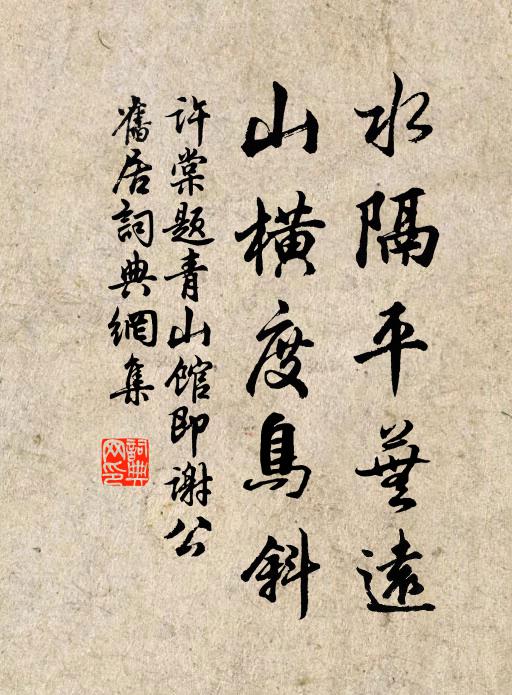 水隔平蕪遠
山橫度鳥斜
許棠題青山館即謝公
舊居詞典網集
詞典網印